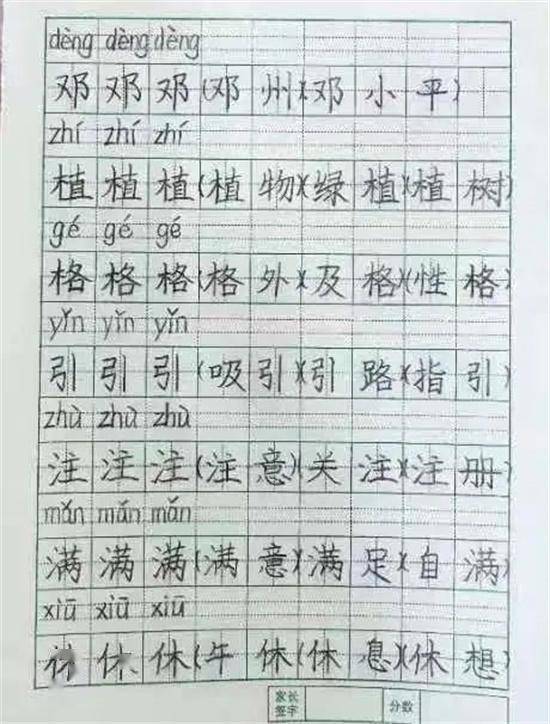 dèng dèng dèng
邓 邓 邓(邓 州)(邓 小 平)
zhí zhí zhí
植 植 植(植 物)(绿 植)(植 树)
gé gé gé
格 格 格(格 外)(及 格)(性 格)
yǐn yǐn yǐn
引 引 引(吸 引)(引 路)(指 引)
zhù zhù zhù
注 注 注(注 意)(关 注)(注 册)
mǎn mǎn mǎn
满 满 满(满 意)(满 足)(自 满)
xiū xiū xiū
休 休 休(午 休)(休 息)(休 想)
家长签字 分数